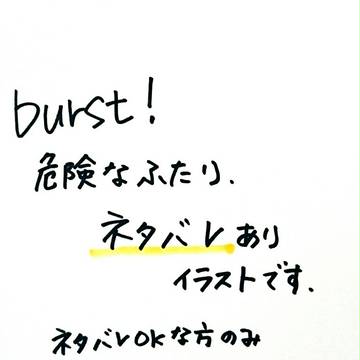 burst!
危険なふたり.
ネタバレあり
イラストです.
ネタバレOKな方のみ